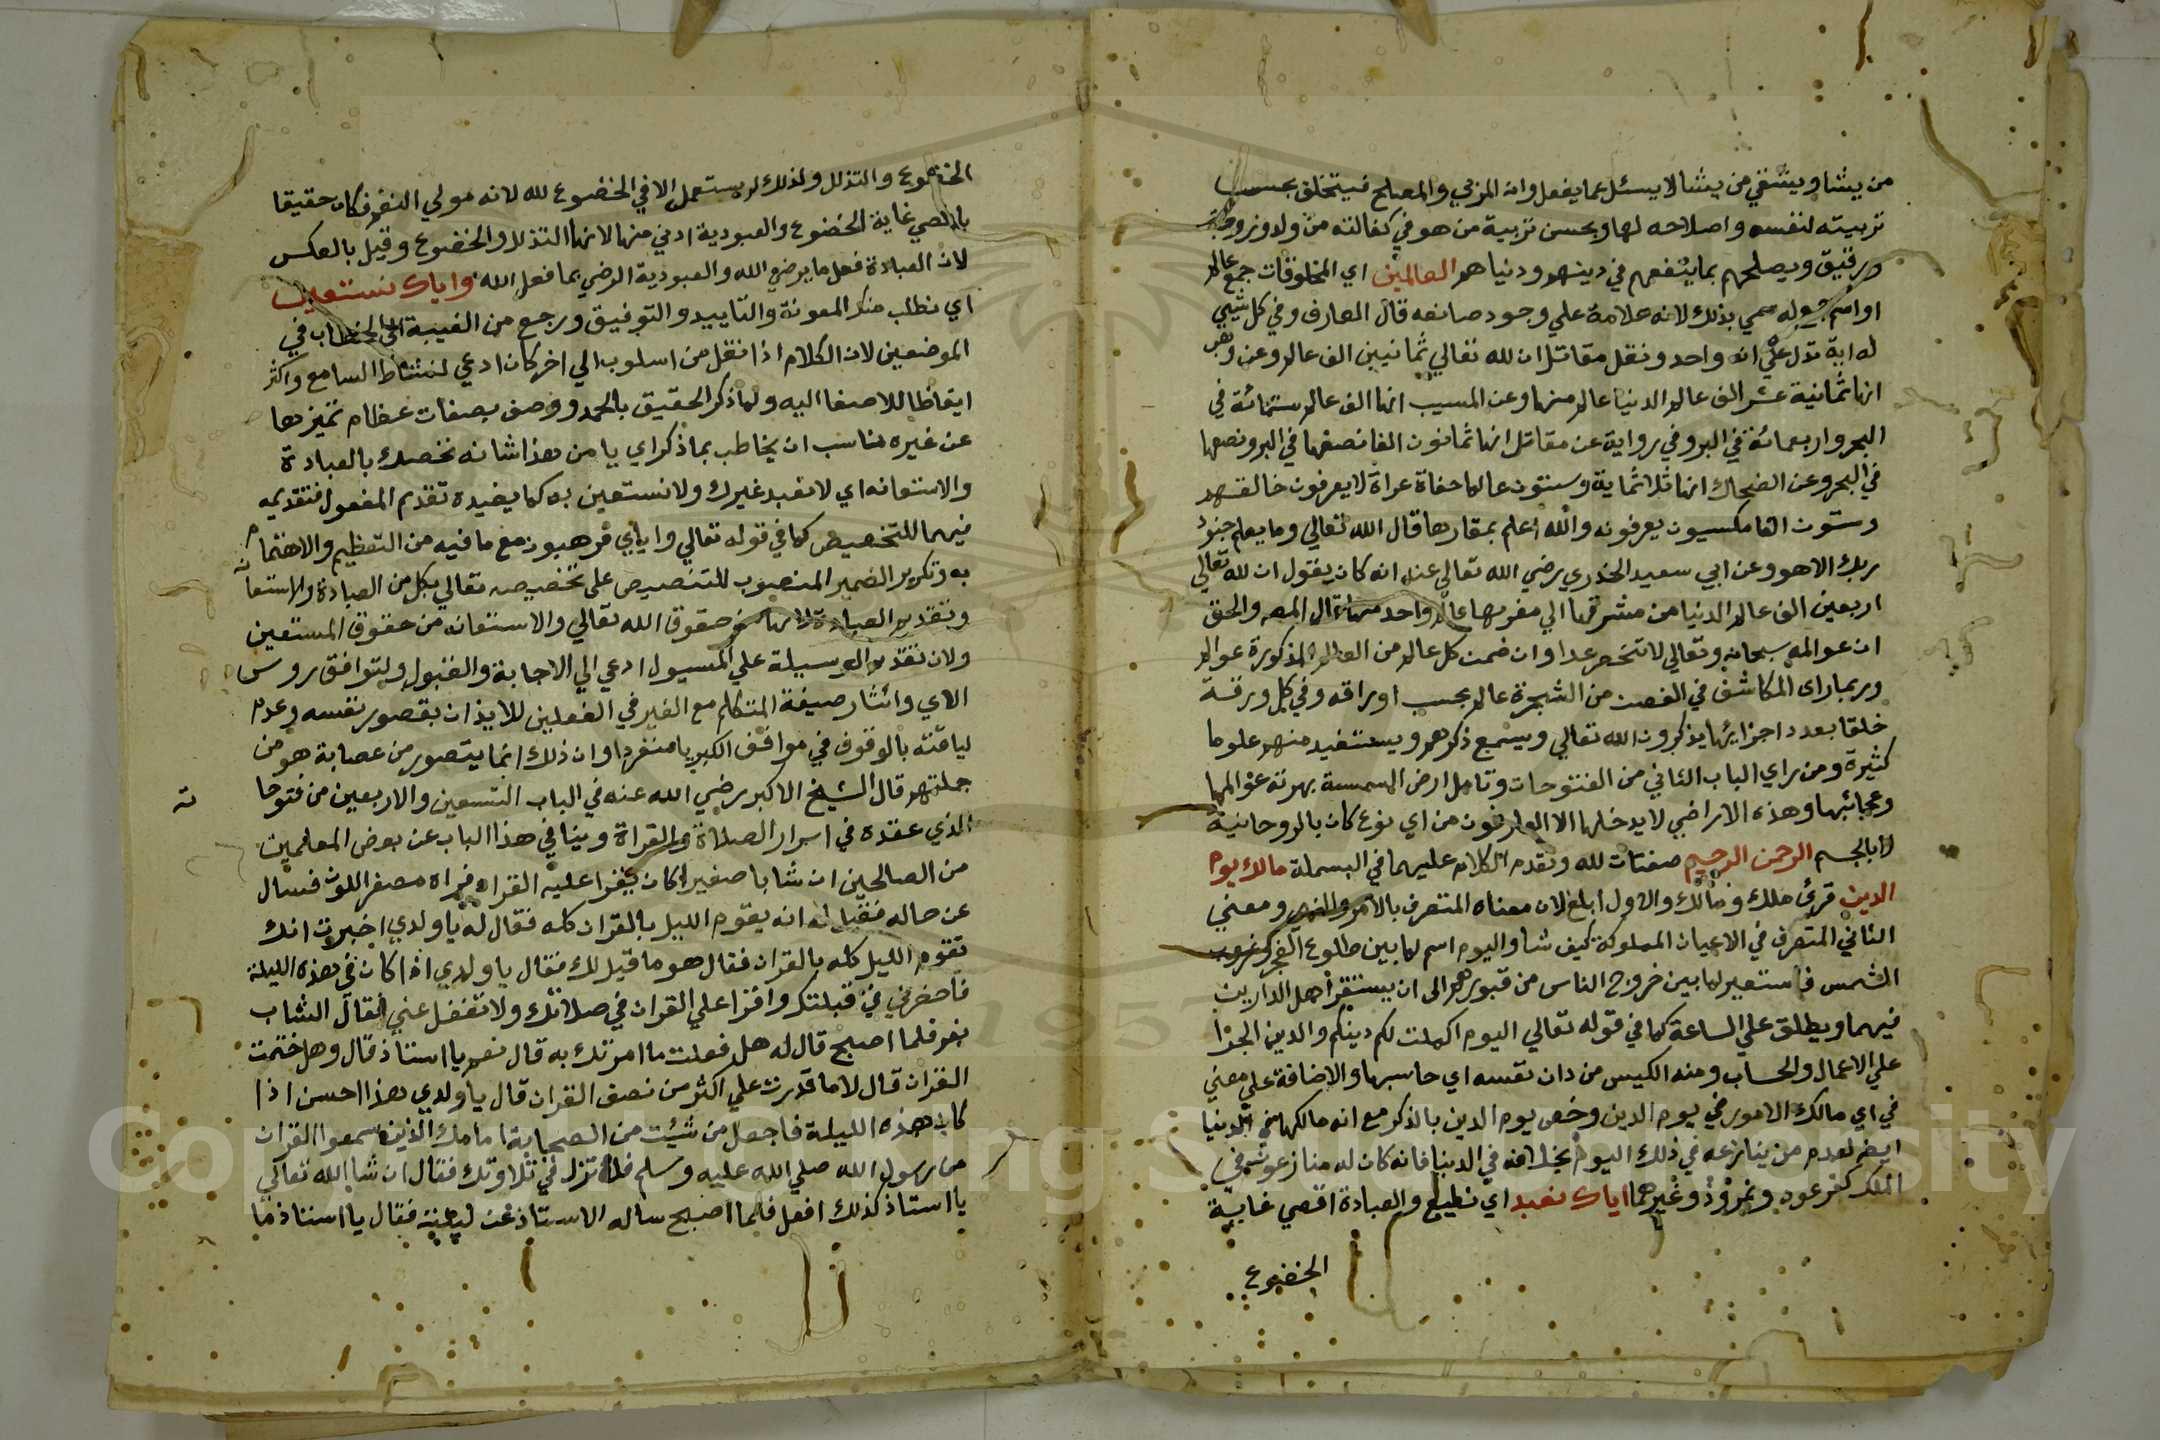 من يشا ويشقي من يشا لا يسئل عما يفعل وانه المزجي والمصلح فيتخلق بحسب
تربيته لنفسه واصلاحه لها وبحسن تربية من هو في كفالته من ولد وزوجة
ورقيق ويصلحهم بما ينفعهم في دينهم ودنياهم العالمين اي المخلوقات جمع عالم
او اسم جمع له سمي بذلك لانه علامة علي وجود صانعه قال العارف وفي كل شيي
له اية تدل علي انه واحد ونقل مقاتل ان لله تعالي ثمانيين الف عالم وعن وهب
انها ثمانية عشر الف عالم الدنيا عالم منها وعن المسيب انها الف عالم ستمائة في
البحر واربعمائة في البر وفي رواية عن مقاتل انها ثمانون الفا نصفها في البر ونصفها
في البحر وعن الضحاك انها ثلاثماية وستون عالما حفاة عراة لا يعرفون خالقهم
وستون الفا مكسيون يعرفونه والله اعلم بمقدارها قال الله تعالي وما يعلم جنود
ربك الا هو وعن ابي سعيد الخدري رضي الله تعالي عنه انه كان يقول ان لله تعالي
اربعين الف عالم الدنيا من مشرقها الي مغربها عالم واحد منها قال المص والحق
ان عوالمه سبحانه وتعالي لا تنحصر عدا وان ضمت كل عالم من العالم المذكورة عوالم
وربما راى المكاشف في الغصن من الشجرة عالم بحسب اوراقه وفي كل ورقة
خلقا بعدد اجزايها يذكرون الله تعالي ويسمع ذكرهم ويستفيد منهم علوما
كثيرة ومن راي الباب الثاني من الفتوحات وتامل ارض السمسمة بهرته عوالمها
وعجائبها وهذه الاراضي لا يدخلها الا العارفون من اي نوع كان بالروحانية
لا بالجسم الرحمن الرحيم صفتان لله وتقدم الكلام عليهما في البسملة مالك يوم
الدين قرئ ملك ومالك والاول ابلغ لان معناه المتصرف بالامر والنهي ومعني
الثاني المتصرف في الاعيان المملوكة كيف شا واليوم اسم لما بين طلوع الفجر وغروب
الشمس فاستعير لما بين خروج الناس من قبورهم الى ان يستقر اهل الدارين
فيهما ويطلق علي الساعة كما في قوله تعالي اليوم اكملت لكم دينكم والدين الجزا
علي الاعمال والحساب ومنه الكيس من دان نفسه اي حاسبها والاضافة علي معني
في اي مالك الامور في يوم الدين وخص يوم الدين بالذكر مع انه مالكها في الدنيا
ايض لعدم من ينازعه في ذلك اليوم بخلافه في الدنيا فانه كان له منازعون في
الملك كفرعون ونمرود وغيرهما اياك نعبد اي نطيع والعبادة اقصي غاية
الخضوع
الخضوع والتذلل ولذلك لم يستعمل الا في الخضوع لله لانه مولي النعم فكان حقيقا
باقصي غاية الخضوع والعبودية ادني منها لانها التذلل والخضوع وقيل بالعكس
لان العبادة فعل ما يرضي الله والعبودية الرضي بما فعل الله واياك نستعين
اي نطلب منك المعونة والتاييد والتوفيق ورجع من الغيبة الى الخطاب في
الموضعين لان الكلام اذا نقل من اسلوب الي اخر كان ادعي لنشاط السامع واكثر
ايقاظا للاصغا اليه ولما ذكر الحقيق بالحمد ووصف بصفات عظام تميز بها
عن غيره ناسب ان يخاطب بما ذكر اي يا من هذا شانه نخصك بالعبادة
والاستعانه اي لا نعبد غيرك ولا نستعين به كما يفيده تقديم المفعول فتقديمه
فيهما للتخصيص كما في قوله تعالي واياي فارهبون مع ما فيه من التعظيم والاهتمام
به وتكرير الضمير المنصوب للتنصيص على تخصيصه تعالي بكل من العبادة والاستعانة
وتقديم العبادة لانها من حقوق الله تعالي والاستعانه من حقوق المستعين
ولان تقديم الوسيلة علي المسيول ادعي الي الاجابة والقبول ولتوافق روس
الاي وائثار صيغة المتكلم مع الغير في الفعلين للايذان بقصور نفسه وعدم
لياقته بالوقوف في مواقف الكبريا منفردا وان ذلك انما يتصور من عصابة هو من
جملتهم قال الشيخ الاكبر رضي الله عنه في الباب التسعين والاربعين من فتوحا
ته
الذي عقده في اسرار الصلاة والقراة وينا في هذا الباب عن بعض المعلمين
من الصالحين ان شابا صغيرا كان يقرا عليه القران فراه مصفر اللون فسال
عن حاله فقيل له انه يقوم الليل بالقران كله فقال له يا ولدي اخبرت انك
تقوم الليل كله بالقران فقال هو ما قيل لك فقال يا ولدي اذا كان في هذه الليلة
فاحضرني في قبلتك واقرا علي القران في صلاتك ولا تغفل عني فقال الشاب
نعم فلما اصبح قال له هل فعلت ما امرتك به قال نعم يا استاذ قال وهل ختمت
القران قال لا ما قدرت علي اكثر من نصف القران قال يا ولدي هذا احسن اذا
كان هذه الليلة فاجعل من شيئت من الصحابة امامك الذين سمعوا القران
من رسول الله صلي الله عليه وسلم فلا تزل في تلاوتك فقال ان شا الله تعالي
يا استاذ كذلك افعل فلما اصبح ساله الاستاذ عن ليلته فقال يا استاذ ما